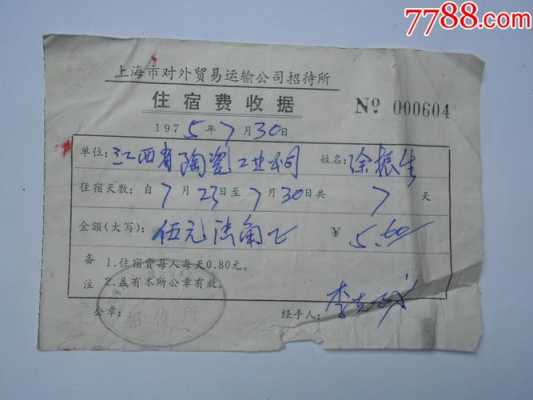 7788.com
上海市对外贸易运输公司招待所
住宿费收据
№ 000604
1975年7月30日
单位：江西省陶瓷工业公司 姓名：徐振生
住宿天数：自7月23日至7月30日共7天
金额(大写)：伍元陆角正 ￥5.60
备注 1.住宿费每人每天0.80元。
2.盖有本所公章有效。
公章： 经手人：李